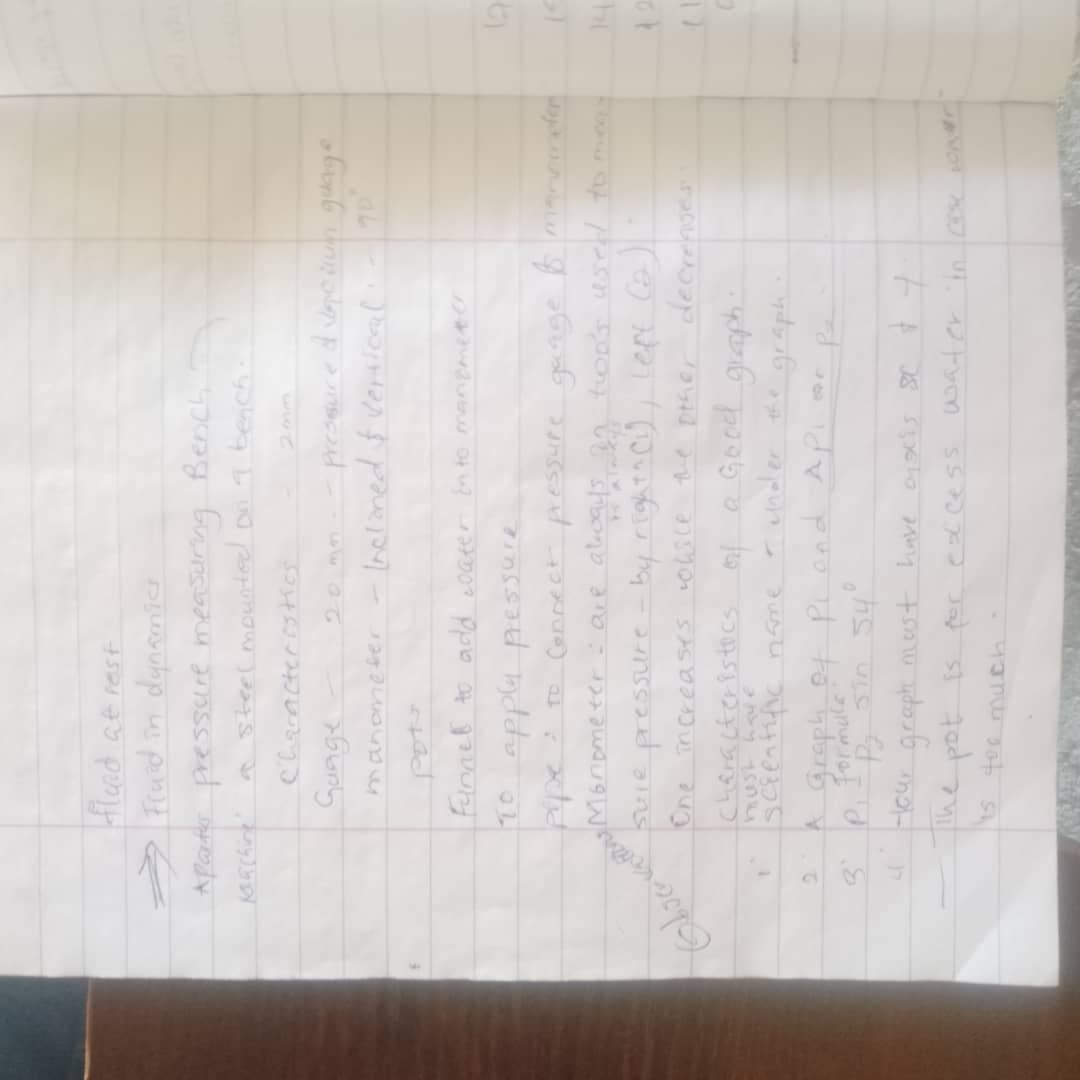 fluid at rest
Fluid in dynamics
Aparatus pressure measuring Bench
Machine a steel mounted on a bench.
Characteristics - 2mm
Guage - 20 mn - pressure & vacuum guage
manometer - Inclined & vertical - 90°
pots
Funnel to add water into manometer
To apply pressure
pipe : to connect pressure guage &
Manometer : are always in two's used to mea-
sure pressure - by right (1), left (2).
One increases while the other decreases.
Characteristics of a Good graph.
must have
1. Scientific name - under the graph.
2. A Graph of P1 and A P1 P2
3. P1 formula
P2 sin 54°
4. -Your graph must have axis x & y.
- The pot is for excess water in case
is too much.
17
14
12
11